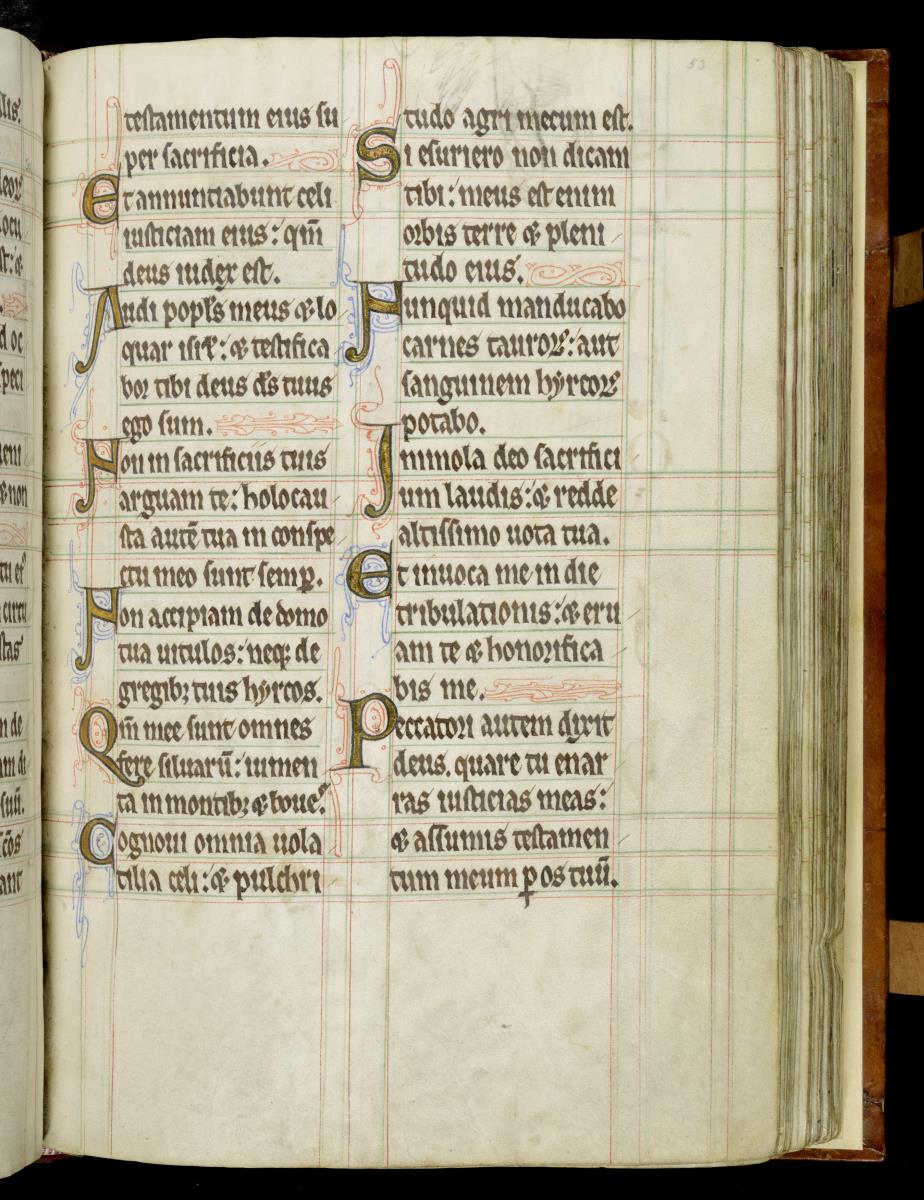 53
testamentum eius su
per sacrificia.
Et annunciabunt celi
iusticiam eius: qm̄
deus iudex est.
Audi popl's meus & lo
quar isrl': & testifica
bor tibi deus ds tuus
ego sum.
Non in sacrificiis tuis
arguam te: holocau
sta autē tua in conspe
ctu meo sunt semꝑ.
Non accipiam de domo
tua uitulos: neqꝫ de
gregibꝫ tuis hyrcos.
Qm̄ mee sunt omnes
fere siluarū: iumen
ta in montibꝫ & boues.
Cognoui omnia uola
tilia celi: & pulchri
tudo agri mecum est.
Si esuriero non dicam
tibi: meus est enim
orbis terre & pleni
tudo eius.
Nunquid manducabo
carnes tauroꝝ: aut
sanguinem hyrcoꝝ
potabo.
Immola deo sacrifici
um laudis: & redde
altissimo uota tua.
Et inuoca me in die
tribulationis: & eru
am te & honorifica
bis me.
Peccatori autem dixit
deus. quare tu enar
ras iusticias meas:
& assumis testamen
tum meum ꝑ os tuū.